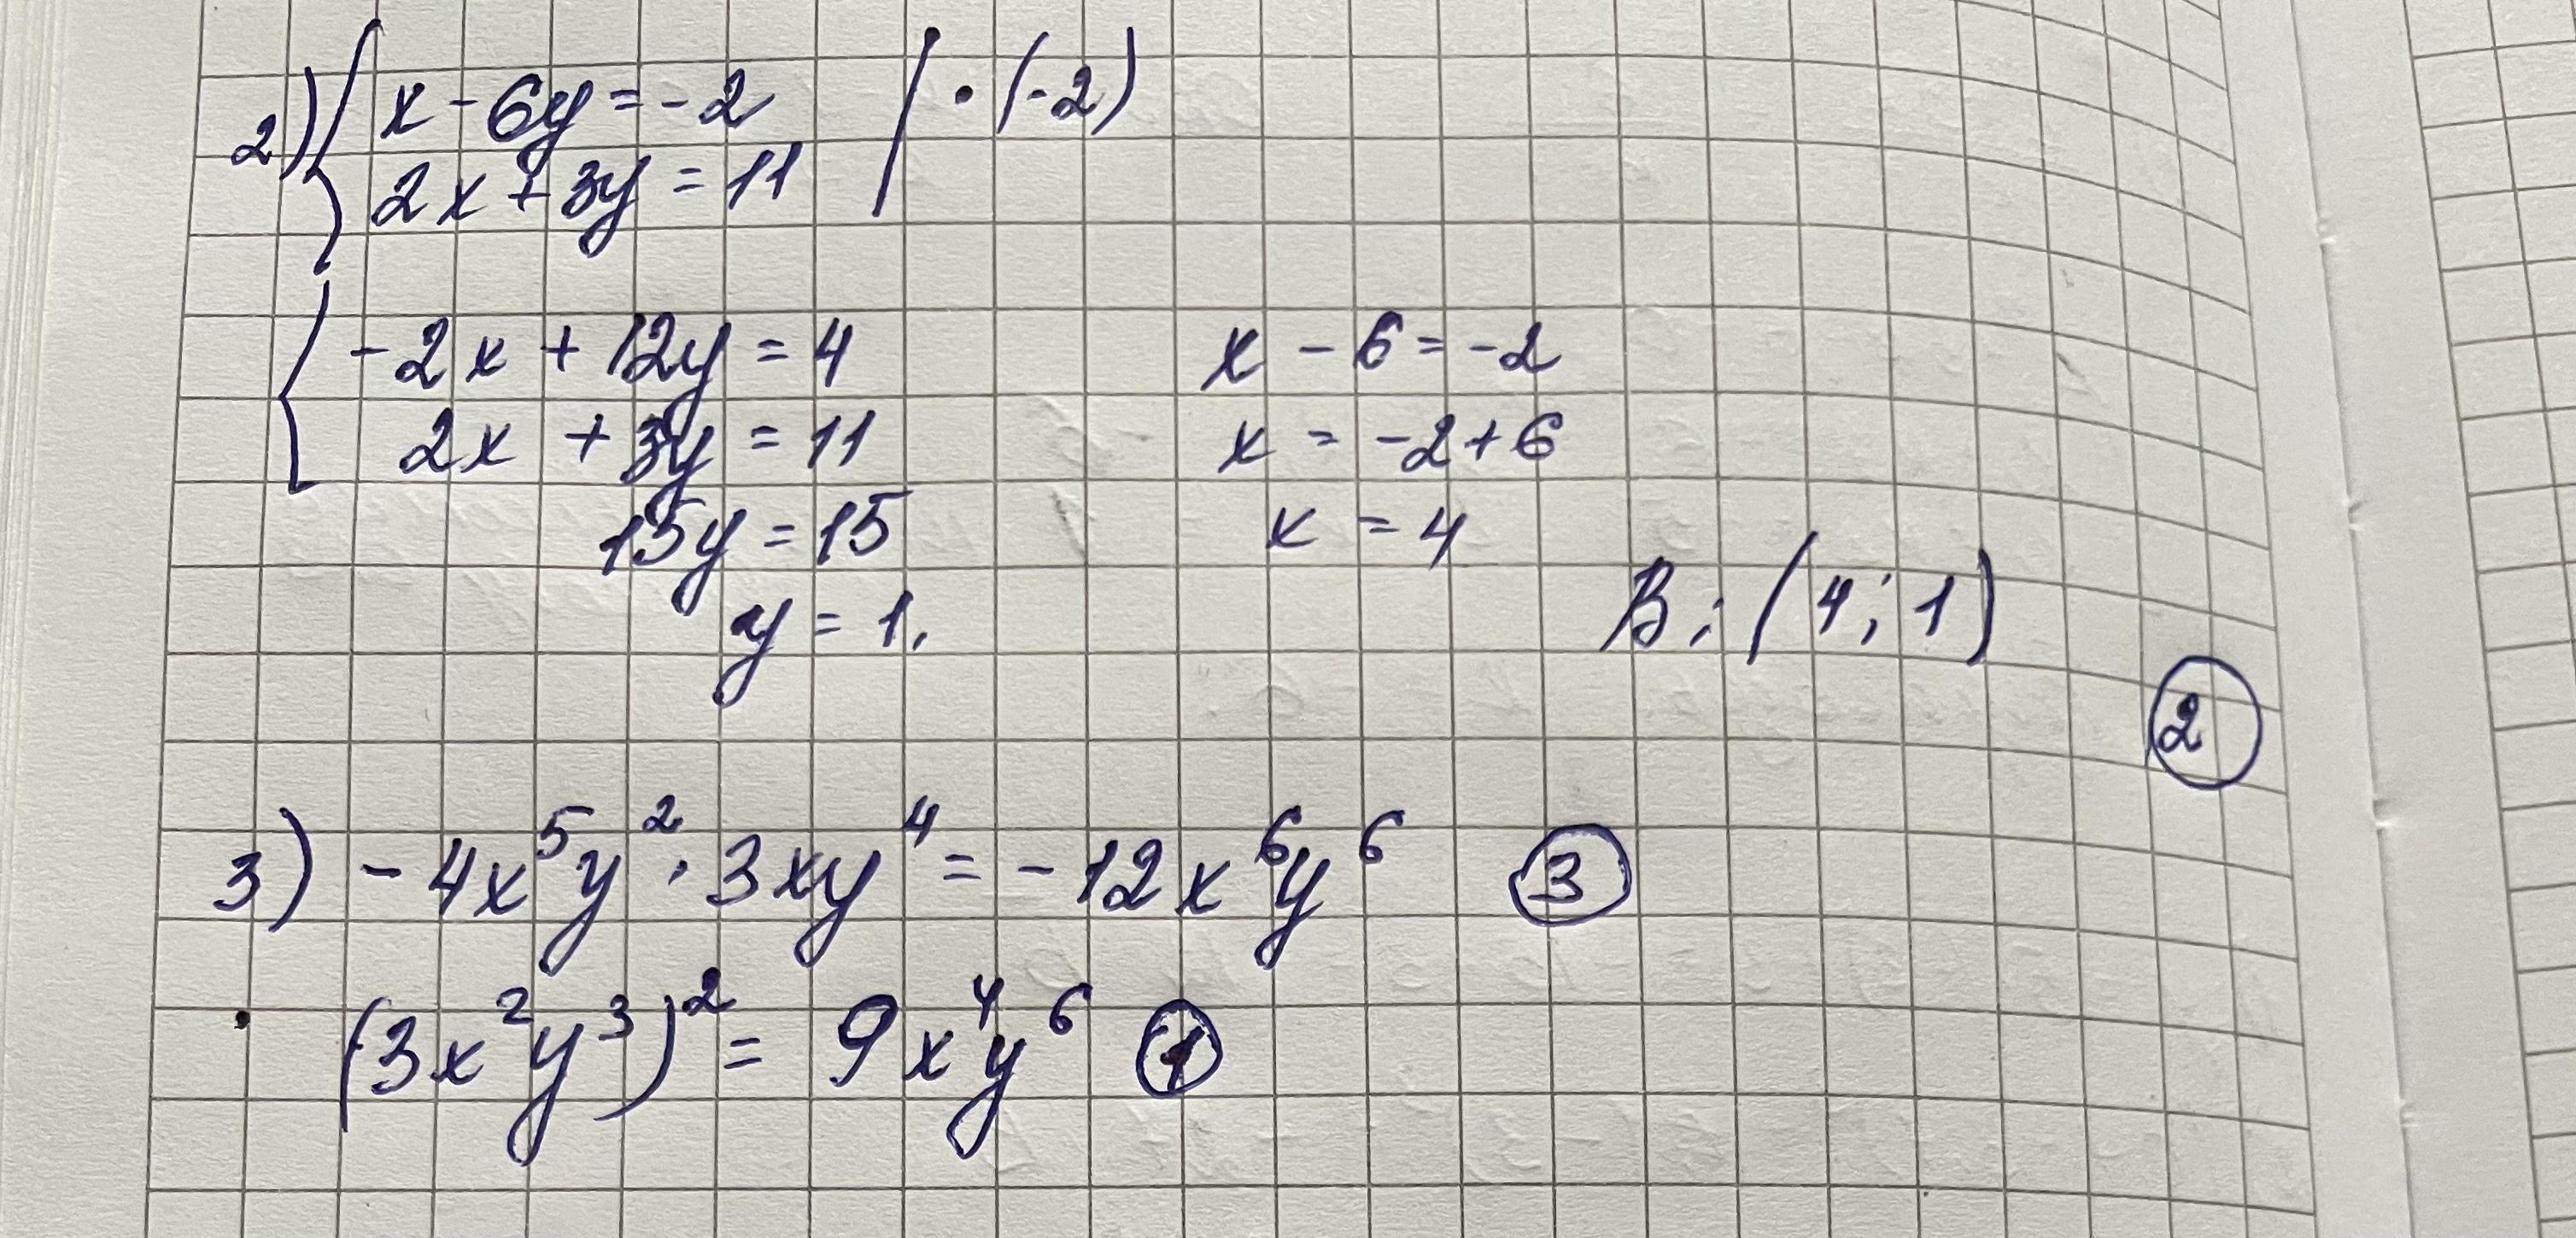 2) { x - 6y = -2 | · (-2)
2x + 3y = 11
{ -2x + 12y = 4
2x + 3y = 11
15y = 15
y = 1.
x - 6 = -2
x = -2 + 6
x = 4
В: (4; 1)
②
3) -4x⁵y² · 3xy⁴ = -12x⁶y⁶ ③
(3x²y³)² = 9x⁴y⁶ ①